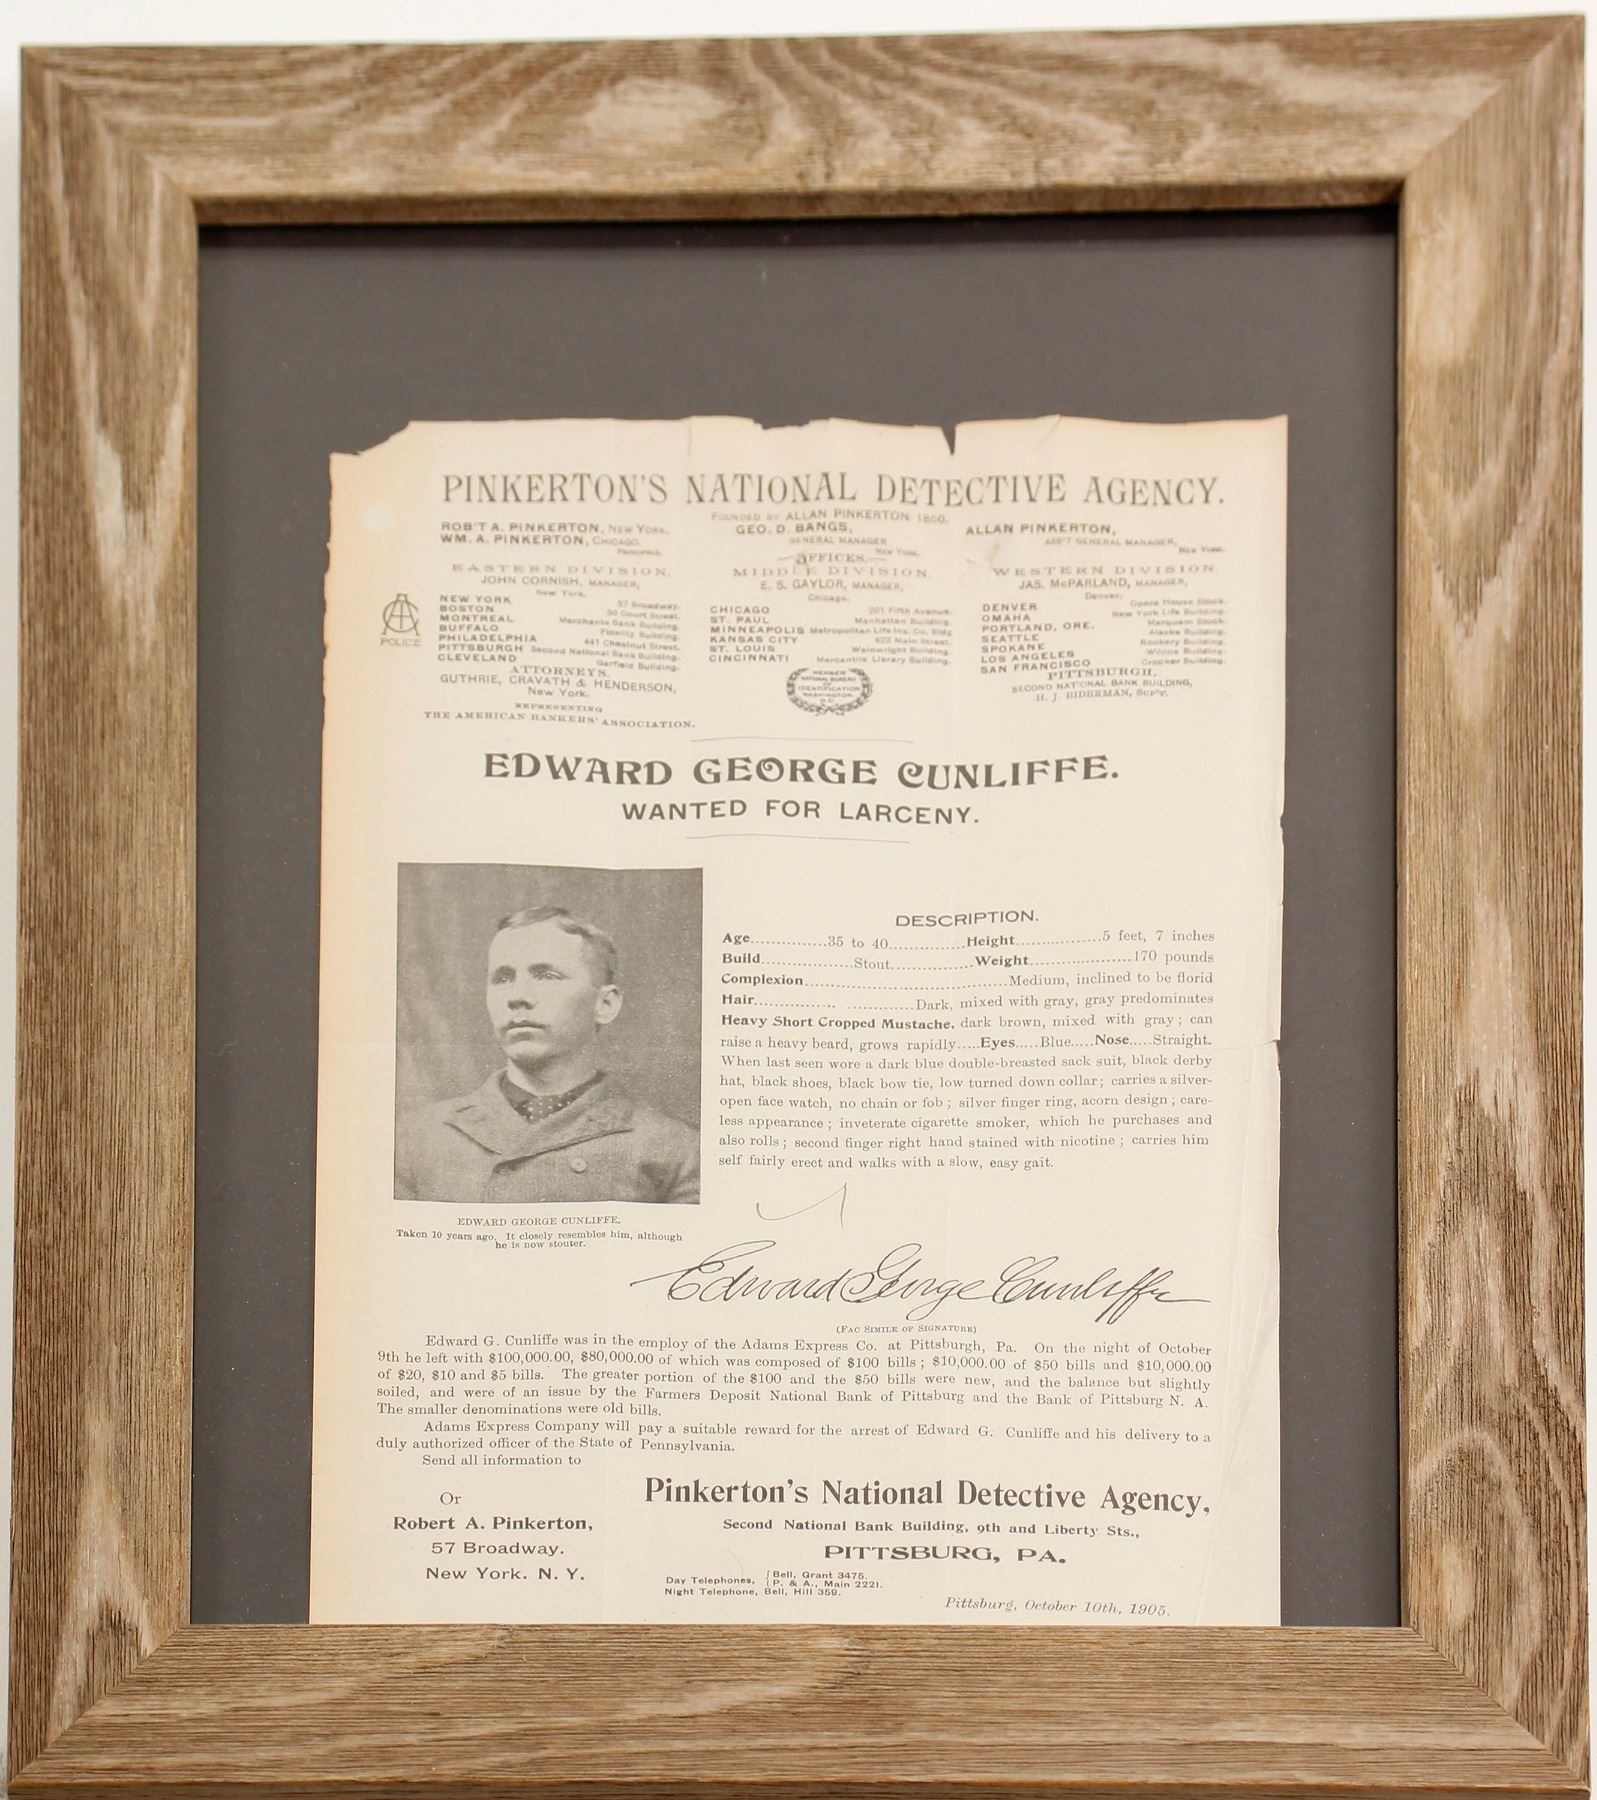 PINKERTON'S NATIONAL DETECTIVE AGENCY.
FOUNDED BY ALLAN PINKERTON 1850.
ROB'T A. PINKERTON, NEW YORK.
WM. A. PINKERTON, CHICAGO.
PRINCIPALS.
GEO. D. BANGS,
GENERAL MANAGER
New York.
ALLAN PINKERTON,
ASS'T GENERAL MANAGER,
New York.
—OFFICES.—
EASTERN DIVISION.
JOHN CORNISH, MANAGER,
New York.
NEW YORK 57 Broadway.
BOSTON 30 Court Street.
MONTREAL Merchants Bank Building.
BUFFALO Fidelity Building.
PHILADELPHIA 441 Chestnut Street.
PITTSBURGH Second National Bank Building.
CLEVELAND Garfield Building.
MIDDLE DIVISION.
E. S. GAYLOR, MANAGER,
Chicago.
CHICAGO 201 Fifth Avenue.
ST. PAUL Manhattan Building.
MINNEAPOLIS Metropolitan Life Ins. Co. Bldg
KANSAS CITY 622 Main Street.
ST. LOUIS Wainwright Building.
CINCINNATI Mercantile Library Building.
WESTERN DIVISION.
JAS. McPARLAND, MANAGER,
Denver.
DENVER Opera House Block.
OMAHA New York Life Building.
PORTLAND, ORE. Marquam Block.
SEATTLE Alaska Building.
SPOKANE Rookery Building.
LOS ANGELES Wilcox Building.
SAN FRANCISCO Crocker Building.
POLICE
ATTORNEYS.
GUTHRIE, CRAVATH & HENDERSON,
New York.
REPRESENTING
THE AMERICAN BANKERS' ASSOCIATION.
MEMBER
NATIONAL BUREAU
OF
IDENTIFICATION
WASHINGTON
D.C.
PITTSBURGH.
SECOND NATIONAL BANK BUILDING,
H. J. BIDERMAN, Sup't.
EDWARD GEORGE CUNLIFFE.
WANTED FOR LARCENY.
EDWARD GEORGE CUNLIFFE.
Taken 10 years ago. It closely resembles him, although
he is now stouter.
DESCRIPTION.
Age..............35 to 40..............Height................5 feet, 7 inches
Build.................Stout...............Weight...................170 pounds
Complexion.....................................Medium, inclined to be florid
Hair............... ............Dark, mixed with gray, gray predominates
Heavy Short Cropped Mustache, dark brown, mixed with gray; can
raise a heavy beard, grows rapidly.....Eyes.....Blue.....Nose.....Straight.
When last seen wore a dark blue double-breasted sack suit, black derby
hat, black shoes, black bow tie, low turned down collar; carries a silver-
open face watch, no chain or fob; silver finger ring, acorn design; care-
less appearance; inveterate cigarette smoker, which he purchases and
also rolls; second finger right hand stained with nicotine; carries him
self fairly erect and walks with a slow, easy gait.
Edward George Cunliffe
(FAC SIMILE OF SIGNATURE)
Edward G. Cunliffe was in the employ of the Adams Express Co. at Pittsburgh, Pa. On the night of October
9th he left with $100,000.00, $80,000.00 of which was composed of $100 bills; $10,000.00 of $50 bills and $10,000.00
of $20, $10 and $5 bills. The greater portion of the $100 and the $50 bills were new, and the balance but slightly
soiled, and were of an issue by the Farmers Deposit National Bank of Pittsburg and the Bank of Pittsburg N. A.
The smaller denominations were old bills.
Adams Express Company will pay a suitable reward for the arrest of Edward G. Cunliffe and his delivery to a
duly authorized officer of the State of Pennsylvania.
Send all information to
Or
Robert A. Pinkerton,
57 Broadway.
New York. N. Y.
Pinkerton's National Detective Agency,
Second National Bank Building, 9th and Liberty Sts.,
PITTSBURG, PA.
Day Telephones, { Bell, Grant 3475.
P. & A., Main 2221.
Night Telephone, Bell, Hill 359.
Pittsburg, October 10th, 1905.